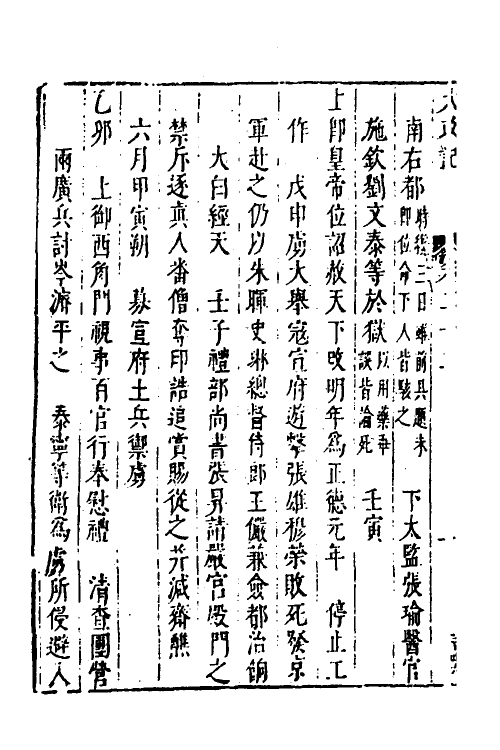 大政記
南右都時從二口蜂前具題未卽位命下人皆駭之　下太監張瑜醫官
施欽劉文泰等於獄以用藥乖誤皆論死　壬寅
上卽皇帝位詔赦天下改明年爲正德元年　停止工
作　戊申虜大舉寇宣府遊擊張雄穆榮敗死發京
軍赴之仍以朱暉史琳總督侍郎王儼兼僉都治餉
太白經天　壬子禮部尚書張昇請嚴宮殿門之
禁斥逐真人番僧奪印誥追賞賜從之并減齋醮
六月甲寅朔　募宣府土兵禦虜
乙卯　上御西角門視事百官行奉慰禮　清查團營
兩廣兵討岑濬平之　泰寧等衛爲虜所侵避入